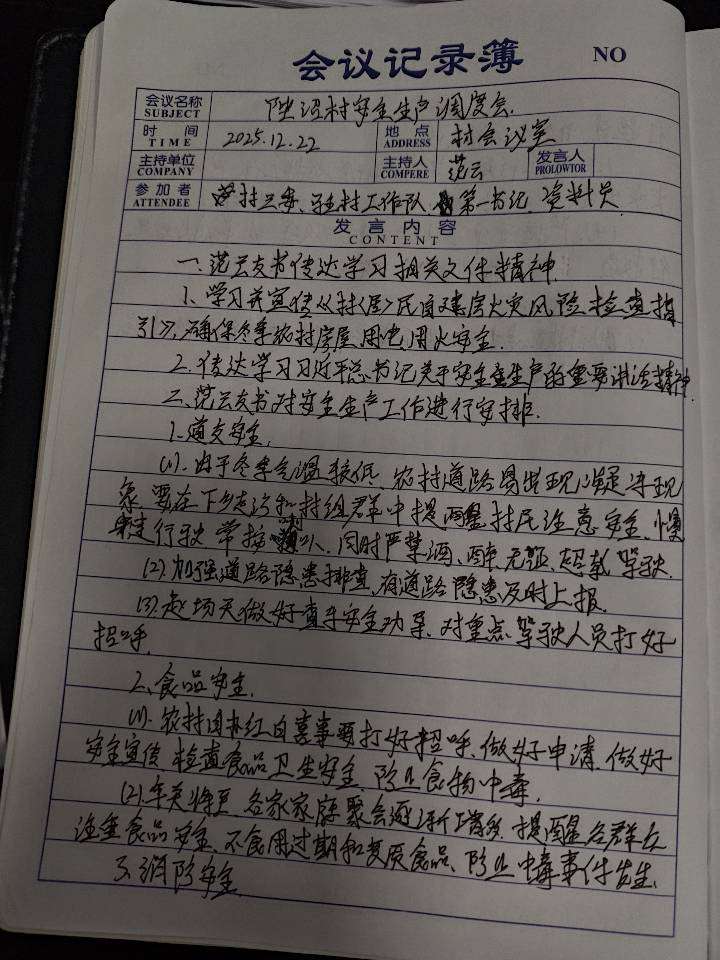 会议记录簿 NO
会议名称 SUBJECT 村安全生产调度会
时间 TIME 2025.12.22 地点 ADDRESS 村会议室
主持单位 COMPANY 主持人 COMPERE 范云 发言人 PROLOWTOR
参加者 ATTENDEE 村三委、驻村工作队、第一书记、资料员
发言内容
CONTENT
一、范云支书传达学习相关文件精神
1、学习并宣传《村(屋)民自建房火灾风险检查指
引》,确保冬季农村房屋用电用火安全.
2、传达学习习近平总书记关于安全生产的重要讲话精神
二、范云支书对安全生产工作进行安排.
1、道交安全.
(1). 由于冬季气温较低、农村道路易出现凝冻现
象要在下乡走访和村组群中提醒村民注意安全、慢
速行驶常按喇叭、同时严禁酒、醉、无证、超载驾驶.
(2)加强道路隐患排查、有道路隐患及时上报.
(3)赶场天做好牵手安全劝导、对重点驾驶人员打好
招呼.
2、食品安全.
(1). 农村自办红白喜事要打好招呼、做好申请、做好
安全宣传、检查食品卫生安全、防止食物中毒.
(2)年关将至、各家家庭聚会逐渐增多、提醒各群众
注重食品安全、不食用过期和变质食品、防止中毒事件发生.
3、消防安全